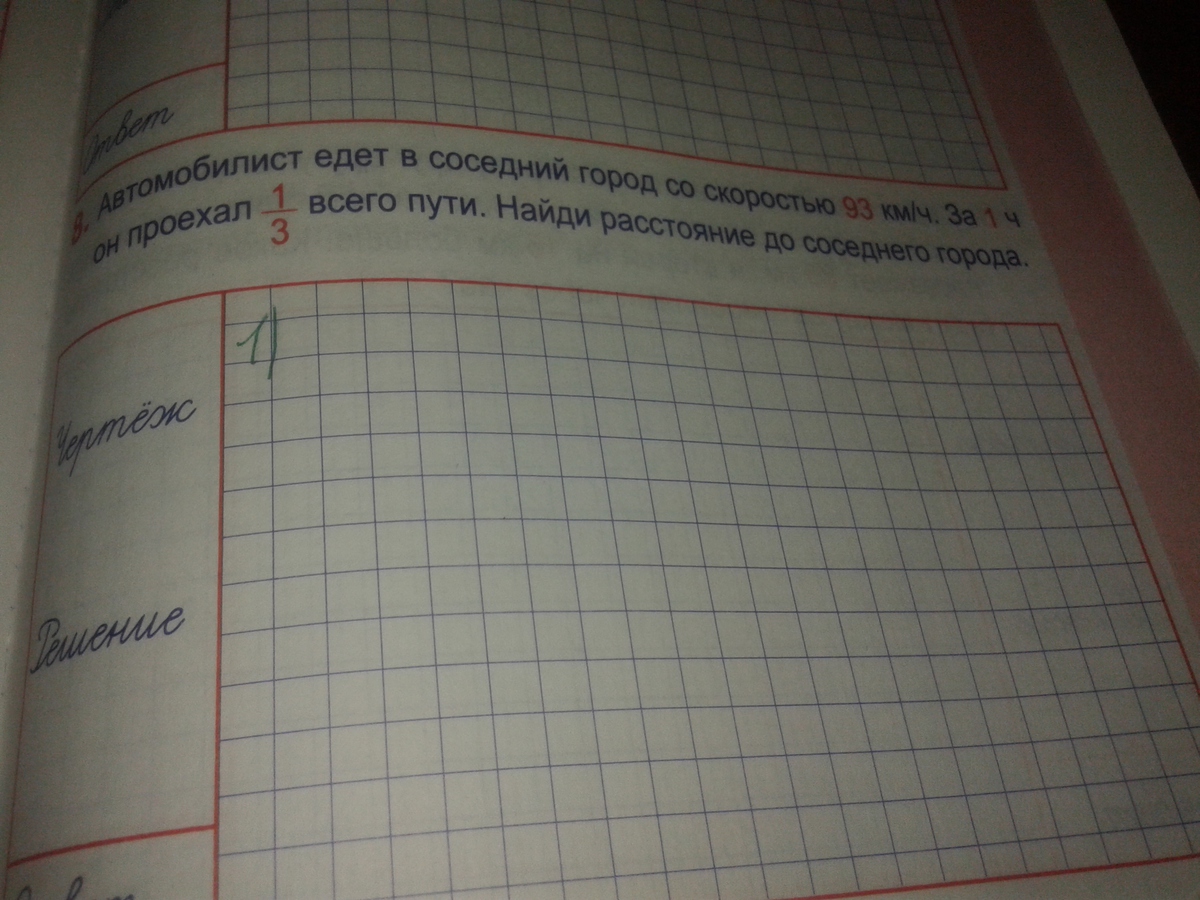 Ответ
9. Автомобилист едет в соседний город со скоростью 93 км/ч. За 1 ч
он проехал 1/3 всего пути. Найди расстояние до соседнего города.
1)
Чертёж
Решение
Ответ